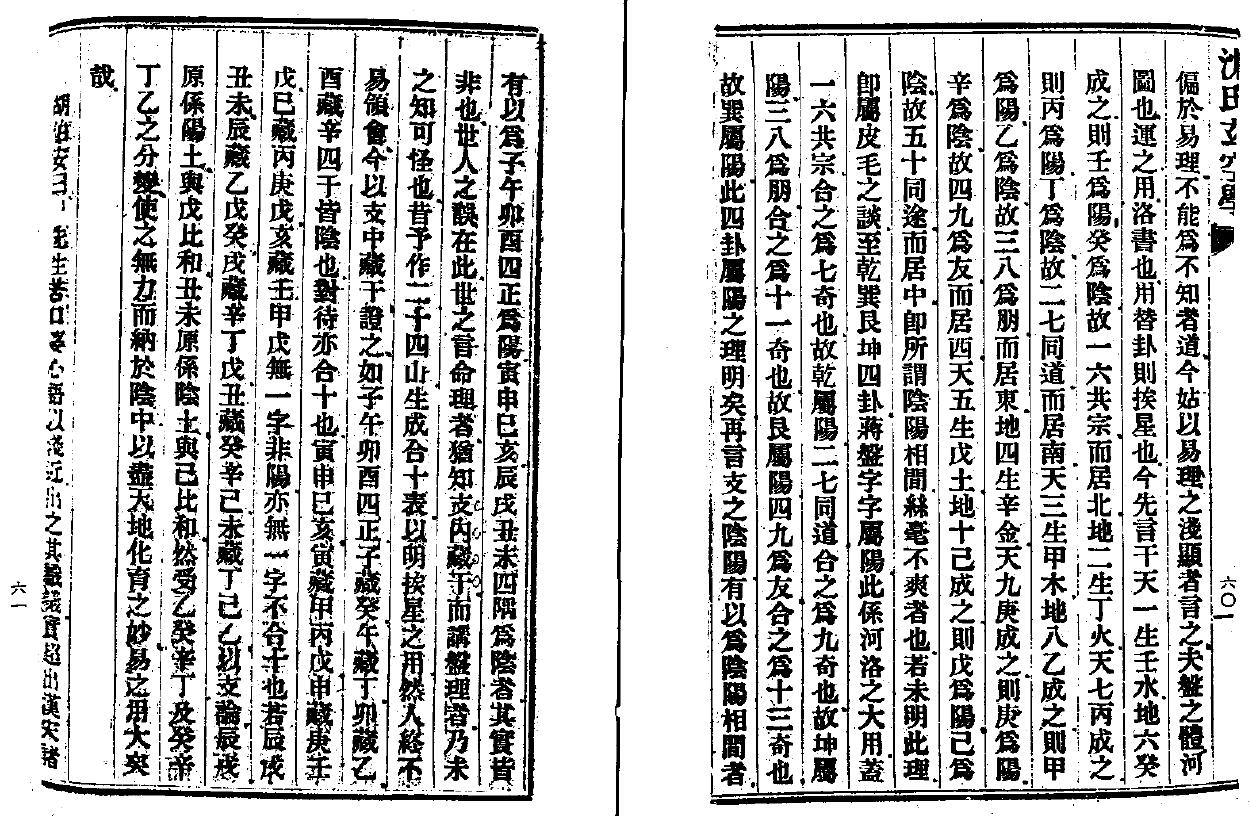 沈氏玄空學
六〇一
偏於易理不能爲不知者道今姑以易理之淺顯者言之夫盤之體河
圖也運之用洛書也用替卦則挨星也今先言干天一生壬水地六癸
成之則壬爲陽癸爲陰故一六共宗而居北地二生丁火天七丙成之
則丙爲陽丁爲陰故二七同道而居南天三生甲木地八乙成之則甲
爲陽乙爲陰故三八爲朋而居東地四生辛金天九庚成之則庚爲陽
辛爲陰故四九爲友而居西天五生戊土地十己成之則戊爲陽己爲
陰故五十同途而居中卽所謂陰陽相間絲毫不爽者也若未明此理
卽屬皮毛之談至乾巽艮坤四卦蔣盤字字屬陽此係河洛之大用蓋
一六共宗合之爲七奇也故乾屬陽二七同道合之爲九奇也故坤屬
陽三八爲朋合之爲十一奇也故艮屬陽四九爲友合之爲十三奇也
故巽屬陽此四卦屬陽之理明矣再言支之陰陽有以爲陰陽相間者
有以爲子午卯酉四正爲陽寅申巳亥辰戌丑未四隅爲陰者其實皆
非也世人之誤在此世之言命理者猶知支內藏干而講盤理者乃未
之知可怪也昔予作二十四山生成合十表以明挨星之用然人終不
易領會今以支中藏干證之如子午卯酉四正子藏癸午藏丁卯藏乙
酉藏辛四干皆陰也對待亦合十也寅申巳亥寅藏甲丙戊申藏庚壬
戊巳藏丙庚戊亥藏壬甲戊無一字非陽亦無一字不合十也若辰戌
丑未辰藏乙戊癸戌藏辛丁戊丑藏癸辛己未藏丁己乙以支論辰戌
原係陽土與戊比和丑未原係陰土與己比和然受乙癸辛丁及癸辛
丁乙之分變使之無力而納於陰中以盡天地化育之妙易之用大矣
哉
胡 生苦口 心語以淺近出之其 議實超出漢宋諸
六一